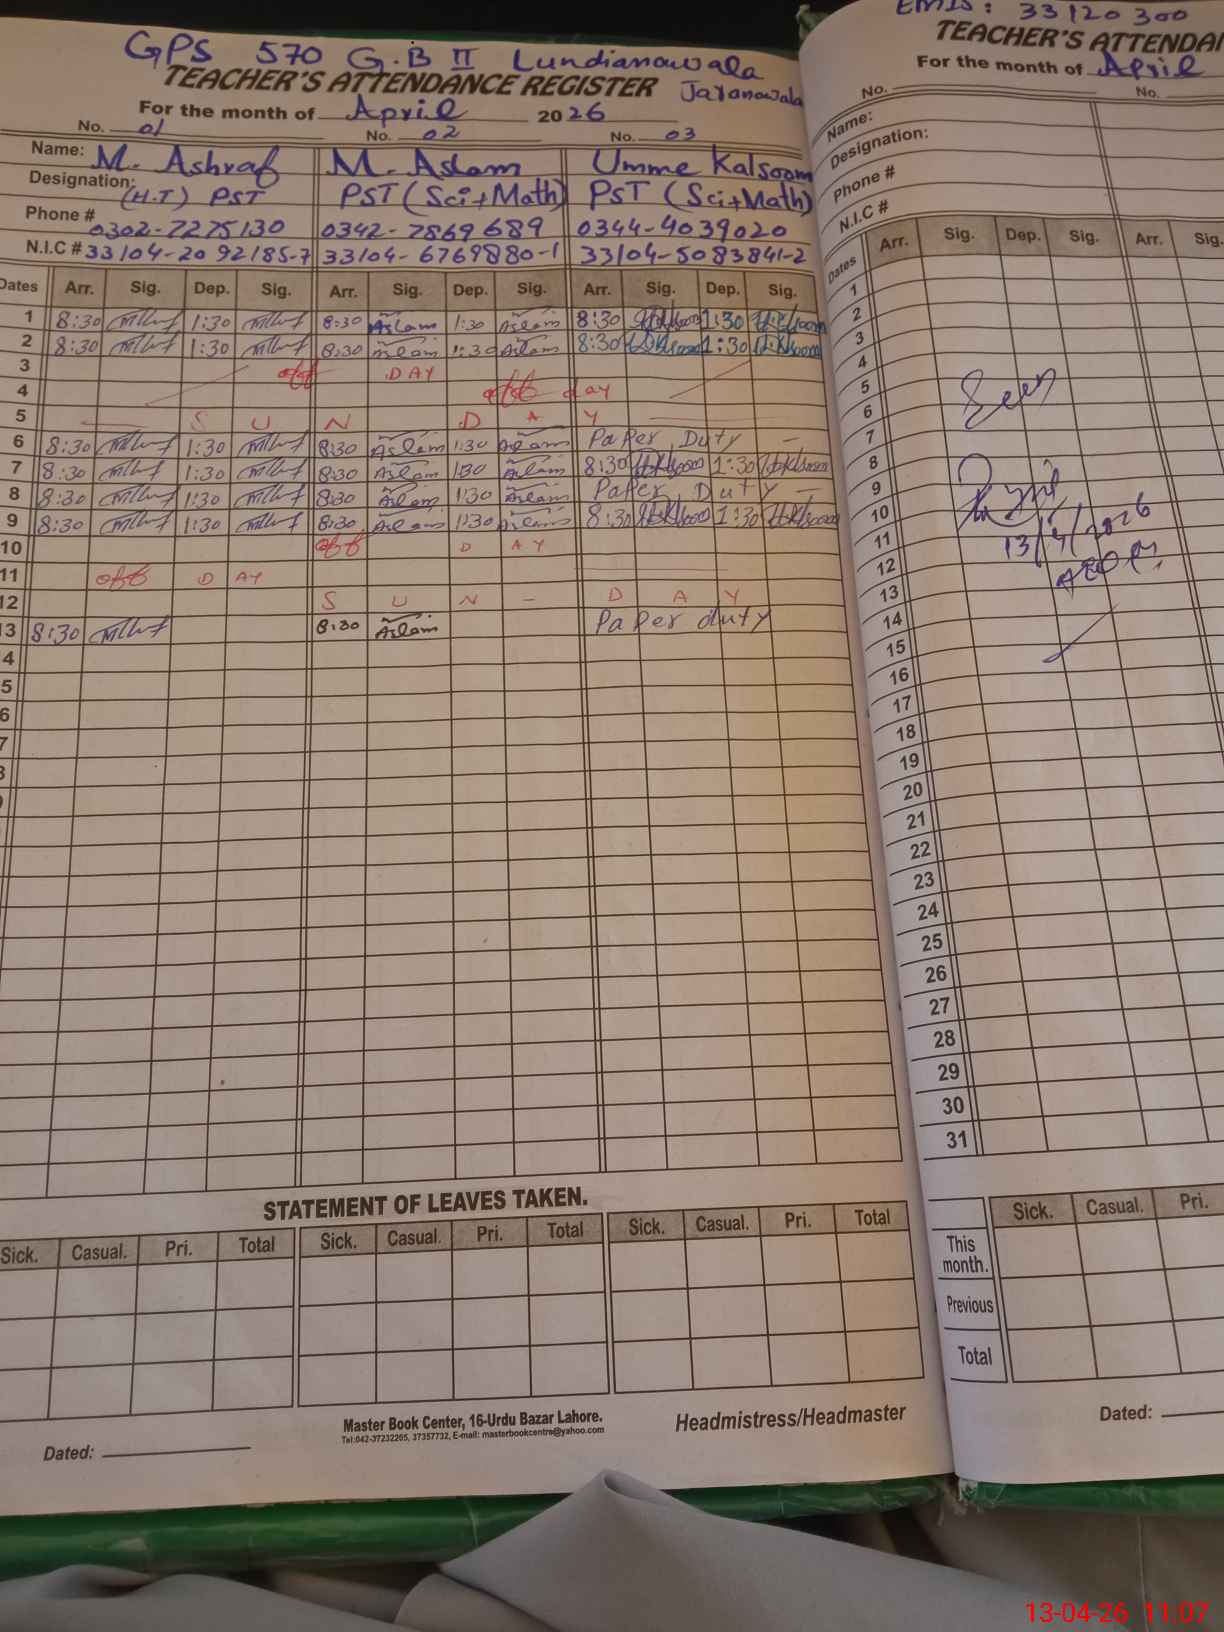 GPS 570 G.B II Lundianawala
TEACHER'S ATTENDANCE REGISTER Jaranawala
For the month of April 2026
No. 01 No. 02 No. 03
Name: M. Ashraf M. Aslam Umme Kalsoom
Designation: (H.T) PST PST (Sci+Math) PST (Sci+Math)
Phone # 0302-7275130 0342-7869689 0344-4039020
N.I.C # 33104-2092185-7 33104-6769880-1 33104-5083841-2
Dates Arr. Sig. Dep. Sig. Arr. Sig. Dep. Sig. Arr. Sig. Dep. Sig.
1 8:30 1:30 8:30 Aslam 1:30 Aslam 8:30 1:30
2 8:30 1:30 8:30 Aslam 1:30 Aslam 8:30 1:30
3 off DAY
4 off day
5 S U N D A Y
6 8:30 1:30 8:30 Aslam 1:30 Aslam Paper Duty -
7 8:30 1:30 8:30 Aslam 1:30 Aslam 8:30 1:30
8 8:30 1:30 8:30 Aslam 1:30 Aslam Paper Duty -
9 8:30 1:30 8:30 Aslam 1:30 Aslam 8:30 1:30
10 off D AY
11 off D AY
12 S U N - D A Y
13 8:30 8:30 Aslam Paper duty
4
5
6
7
STATEMENT OF LEAVES TAKEN.
Sick. Casual. Pri. Total Sick. Casual. Pri. Total Sick. Casual. Pri. Total
Master Book Center, 16-Urdu Bazar Lahore.
Tel:042-37232205, 37357732, E-mail: masterbookcentre@yahoo.com
Headmistress/Headmaster
Dated:
EMIS: 33120300
TEACHER'S ATTENDA
For the month of April
No. No.
Name:
Designation:
Phone #
N.I.C #
Dates Arr. Sig. Dep. Sig. Arr. Sig.
1
2
3
4
5 Seen
6
7
8
9
10
11 13/4/2026
12 AEO
13
14
15
16
17
18
19
20
21
22
23
24
25
26
27
28
29
30
31
Sick. Casual. Pri.
This month.
Previous
Total
Dated:
13-04-26 11:07